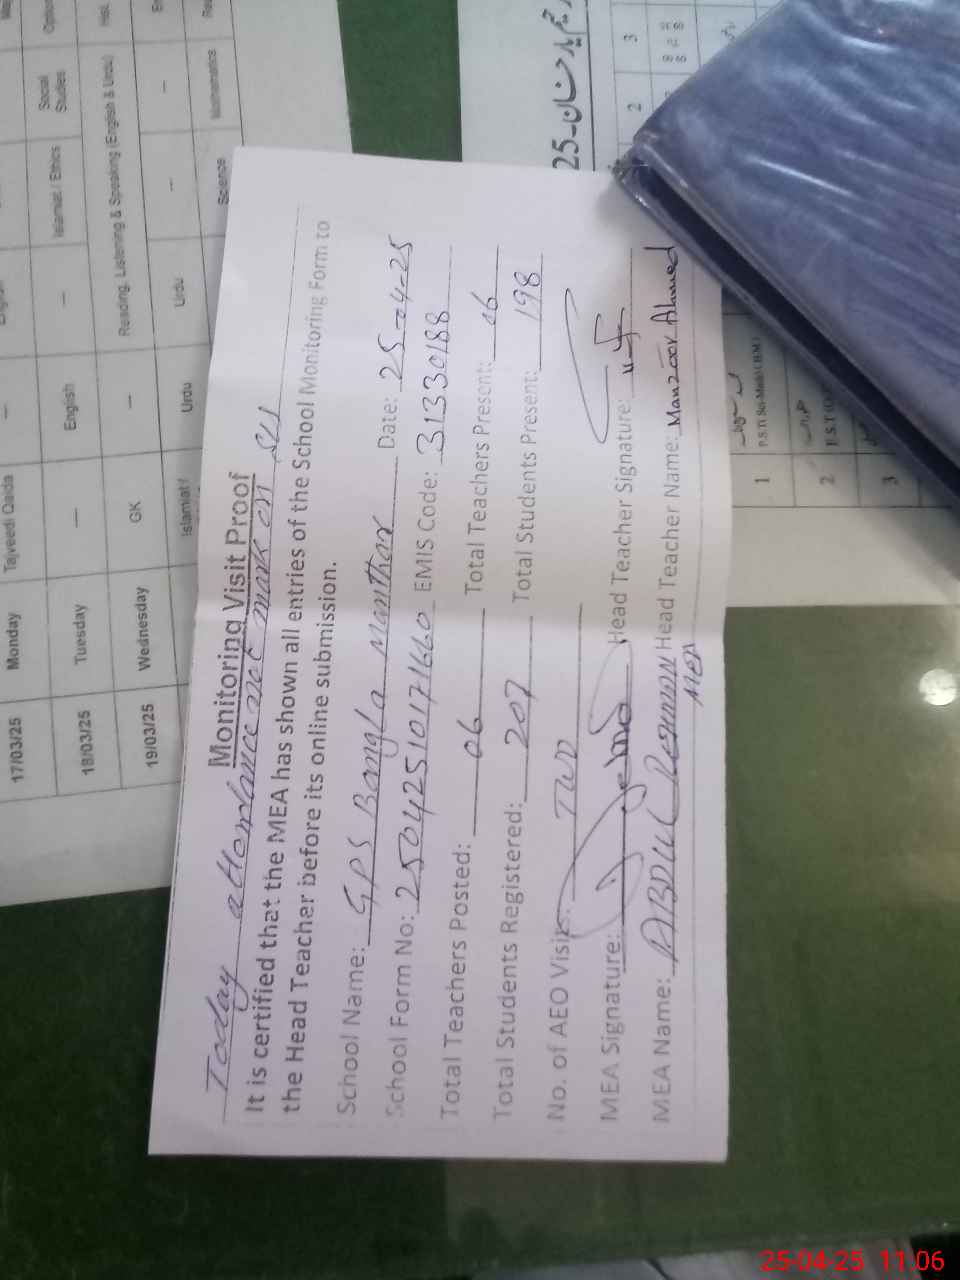 Monitoring Visit Proof
Today attendance not mark on SIS
It is certified that the MEA has shown all entries of the School Monitoring Form to
the Head Teacher before its online submission.
School Name: GPS Bangla Manthar Date: 25-04-25
School Form No: 25042510171660 EMIS Code: 31330188
Total Teachers Posted: 06 Total Teachers Present: 06
Total Students Registered: 207 Total Students Present: 198
No. of AEO Visit: TWO
MEA Signature: Head Teacher Signature:
MEA Name: ABDUL REHMAN MEA Head Teacher Name: Manzoor Ahmed
17/03/25 Monday Tajveedi Qaida — —
18/03/25 Tuesday — English — Islamiat / Ethics Social Studies
19/03/25 Wednesday GK — Reading, Listening & Speaking (English & Urdu)
Islamiat / Urdu Urdu — —
Science Mathematics
25-
2 3
1
2
3
25-04-25 11:06